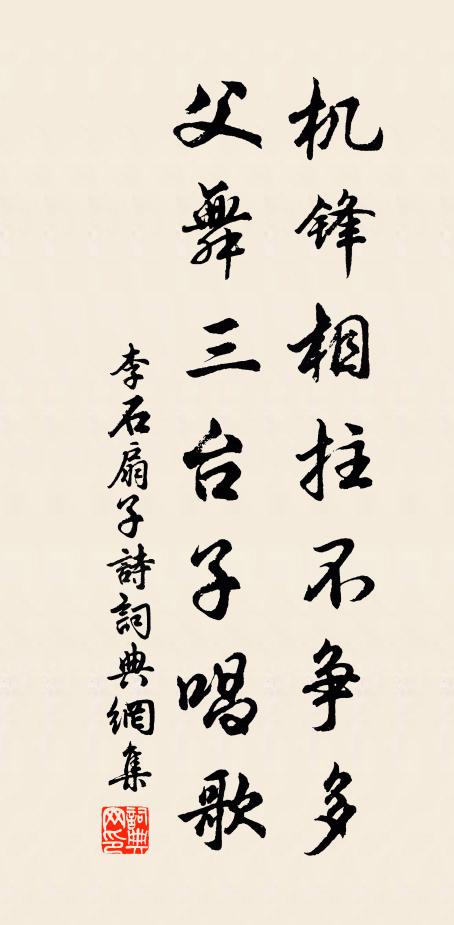 机锋相拄不争多
父舞三台子唱歌
李石扇子詩詞典網集
詞典網印